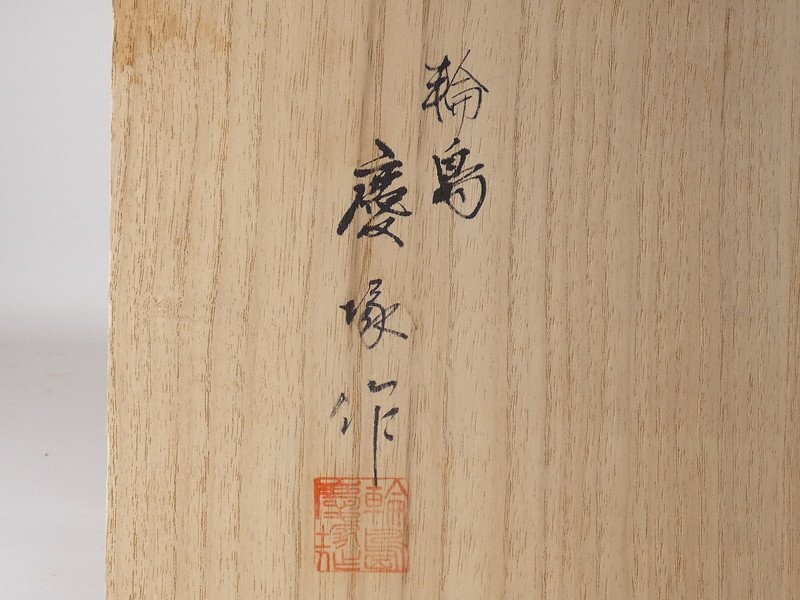 輪島
慶塚作
輪島
慶塚作